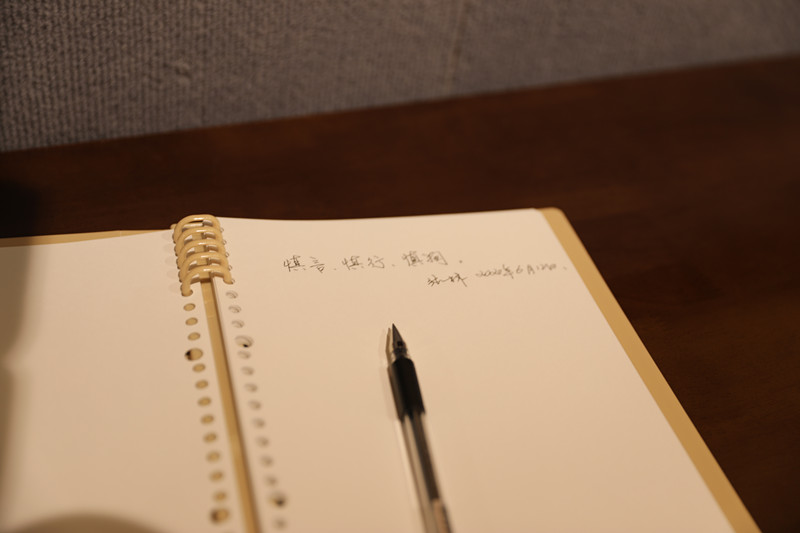 慎言、慎行、慎独。
2022年6月12日.